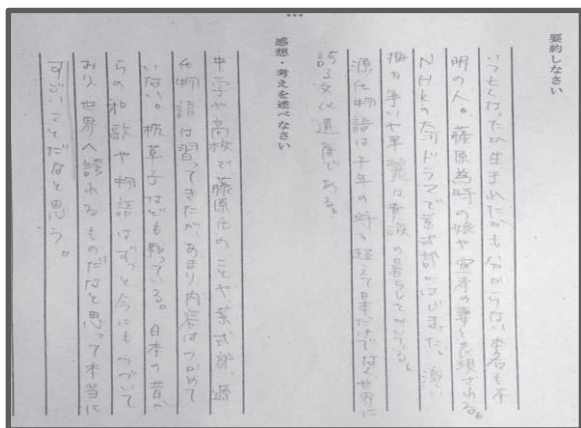 要約しなさい
いつなくなったか生まれたかも分からない本名も不
明の人。藤原為時の娘や宣孝の妻と表現される。
NHKの大河ドラマで紫式部がはじまった。激しい
権力争いや華麗な貴族の暮らしを
源氏物語は千年の時を超えて日本だけでなく世界に
誇る文化遺産である。
感想・考えを述べなさい
中学や高校で藤原氏のことや紫式部、源
氏物語は習ってきたが、あまり内容はつかめて
いない。枕草子なども知っている。日本の昔か
らの和歌や物語はずっと今にもつづいて
おり、世界へ誇れるものだなと思って本当に
すごいことだなと思う。